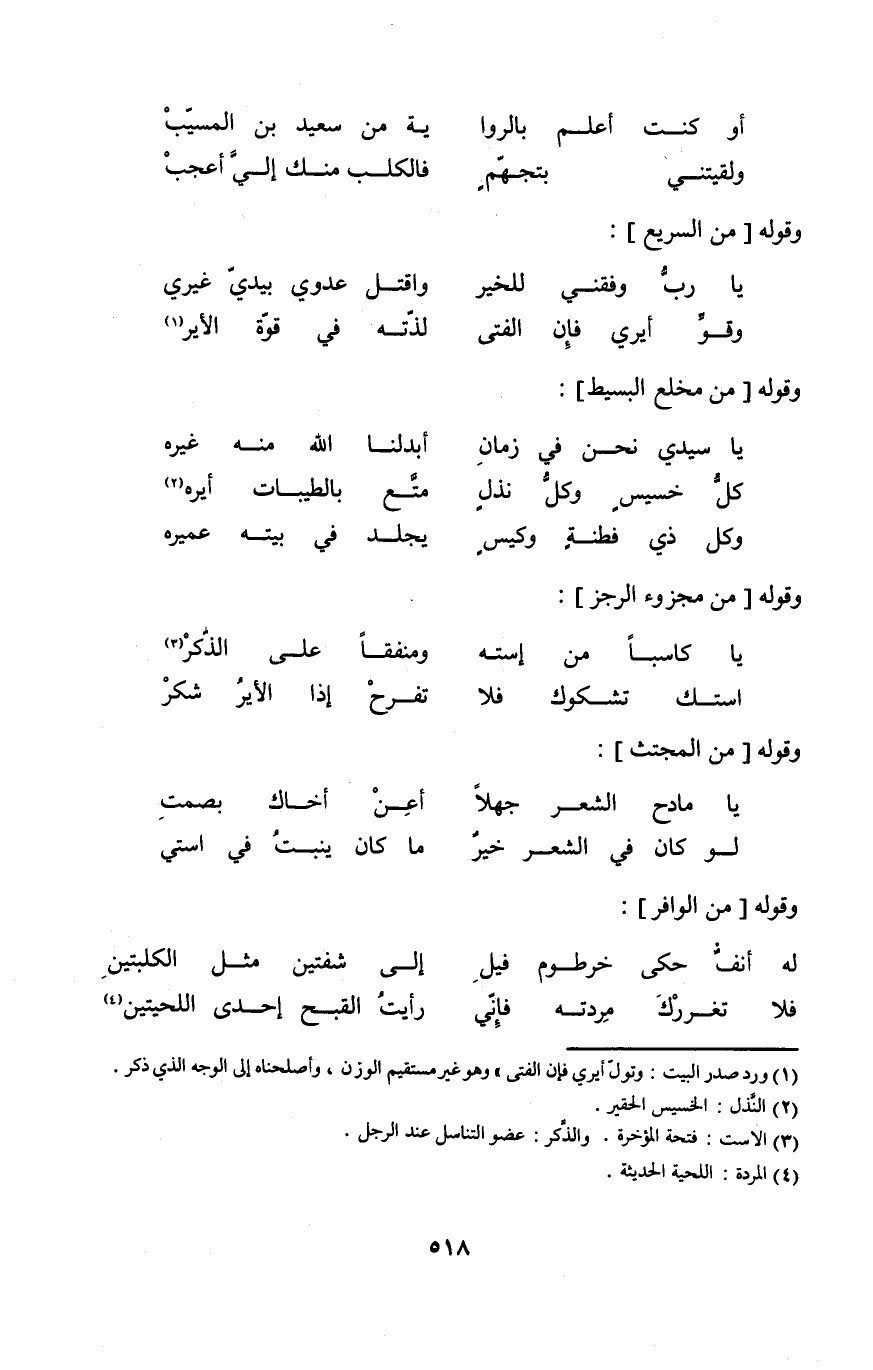 أو كنـت أعلـم بالروا يـة من سعيد بن المسيّبْ
ولقيتنـي بتجـهّمٍ فالكلـب منـك إلـيَّ أعجبْ
وقوله [ من السريع ] :
يا ربُّ وفقنـي للخير واقتـل عدوي بيديّ غيري
وقـوِّ أيري فإن الفتى لذّتـه في قوّة الأير(١)
وقوله [ من مخلع البسيط] :
يا سيدي نحـن في زمانِ أبدلنـا الله منـه غيره
كلُّ خسيسٍ وكلُّ نذلٍ متَّـع بالطيبـات أيره(٢)
وكل ذي فطنـةٍ وكيسٍ يجلـد في بيتـه عميره
وقوله [ من مجزوء الرجز ] :
يا كاسبـاً من إستـه ومنفقـاً علـى الذَّكرْ(٣)
استـك تشـكوك فلا تفـرحْ إذا الأيرُ شكرْ
وقوله [ من المجتث ] :
يا مادح الشعـر جهلاً أعِـنْ أخـاك بصمتِ
لـو كان في الشعـر خيرٌ ما كان ينبـتُ في استي
وقوله [ من الوافر ] :
له أنفٌ حكى خرطـوم فيلِ إلـى شفتين مثـل الكلبتينِ
فلا تغـررْكَ مِردتـه فإنّي رأيتُ القبـح إحـدى اللحيتين(٤)
(١) ورد صدر البيت : وتولّ أيري فإن الفتى » وهو غير مستقيم الوزن ، وأصلحناه إلى الوجه الذي ذكر .
(٢) النَّذل : الخسيس الحقير .
(٣) الاست : فتحة المؤخرة . والذَّكر : عضو التناسل عند الرجل .
(٤) المردة : اللحية الحديثة .
٥١٨